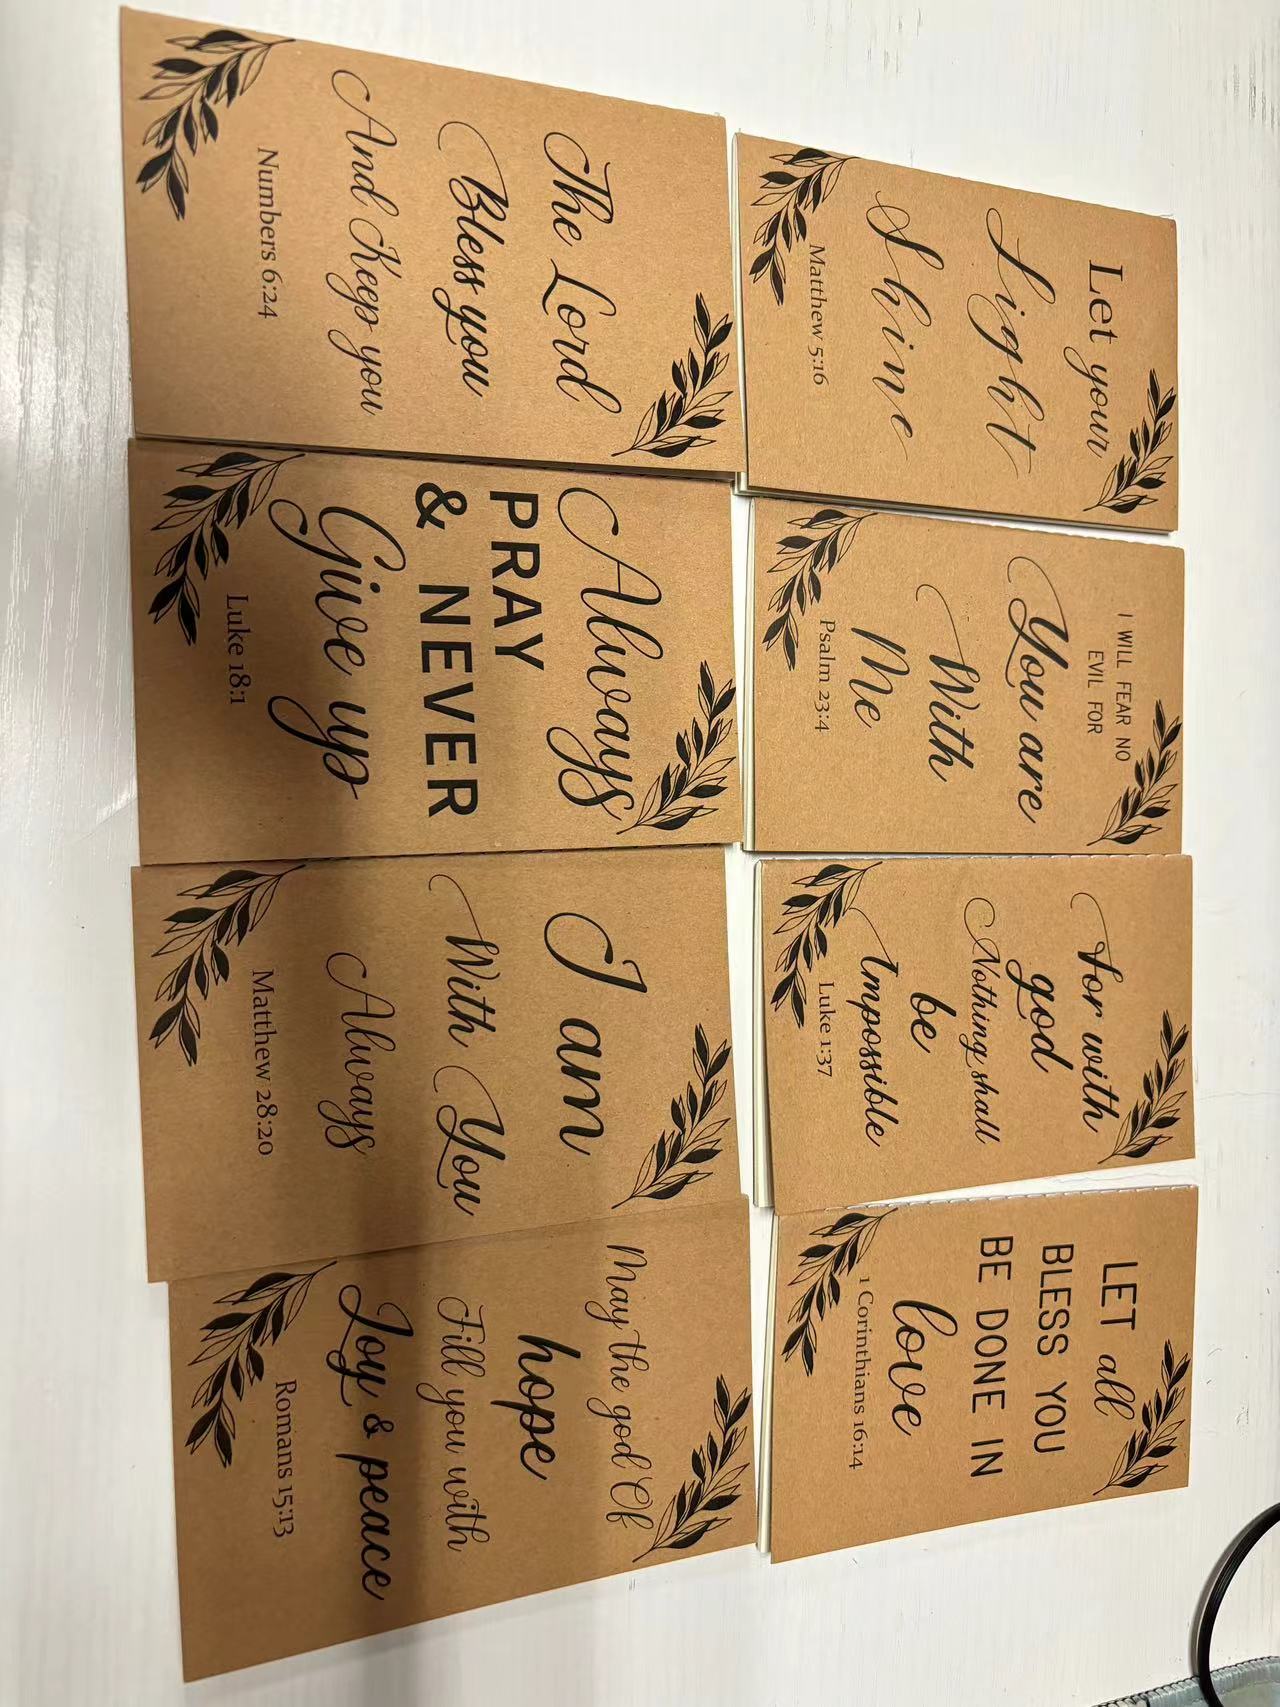 Let your
Light
Shine
Matthew 5:16
I WILL FEAR NO
EVIL FOR
You are
With
Me
Psalm 23:4
For with
god
Nothing shall
be
Impossible
Luke 1:37
LET all
BLESS YOU
BE DONE IN
love
1 Corinthians 16:14
The Lord
Bless you
And Keep you
Numbers 6:24
Always
PRAY
& NEVER
Give up
Luke 18:1
I am
With You
Always
Matthew 28:20
May the god Of
hope
Fill you with
Joy & peace
Romans 15:13